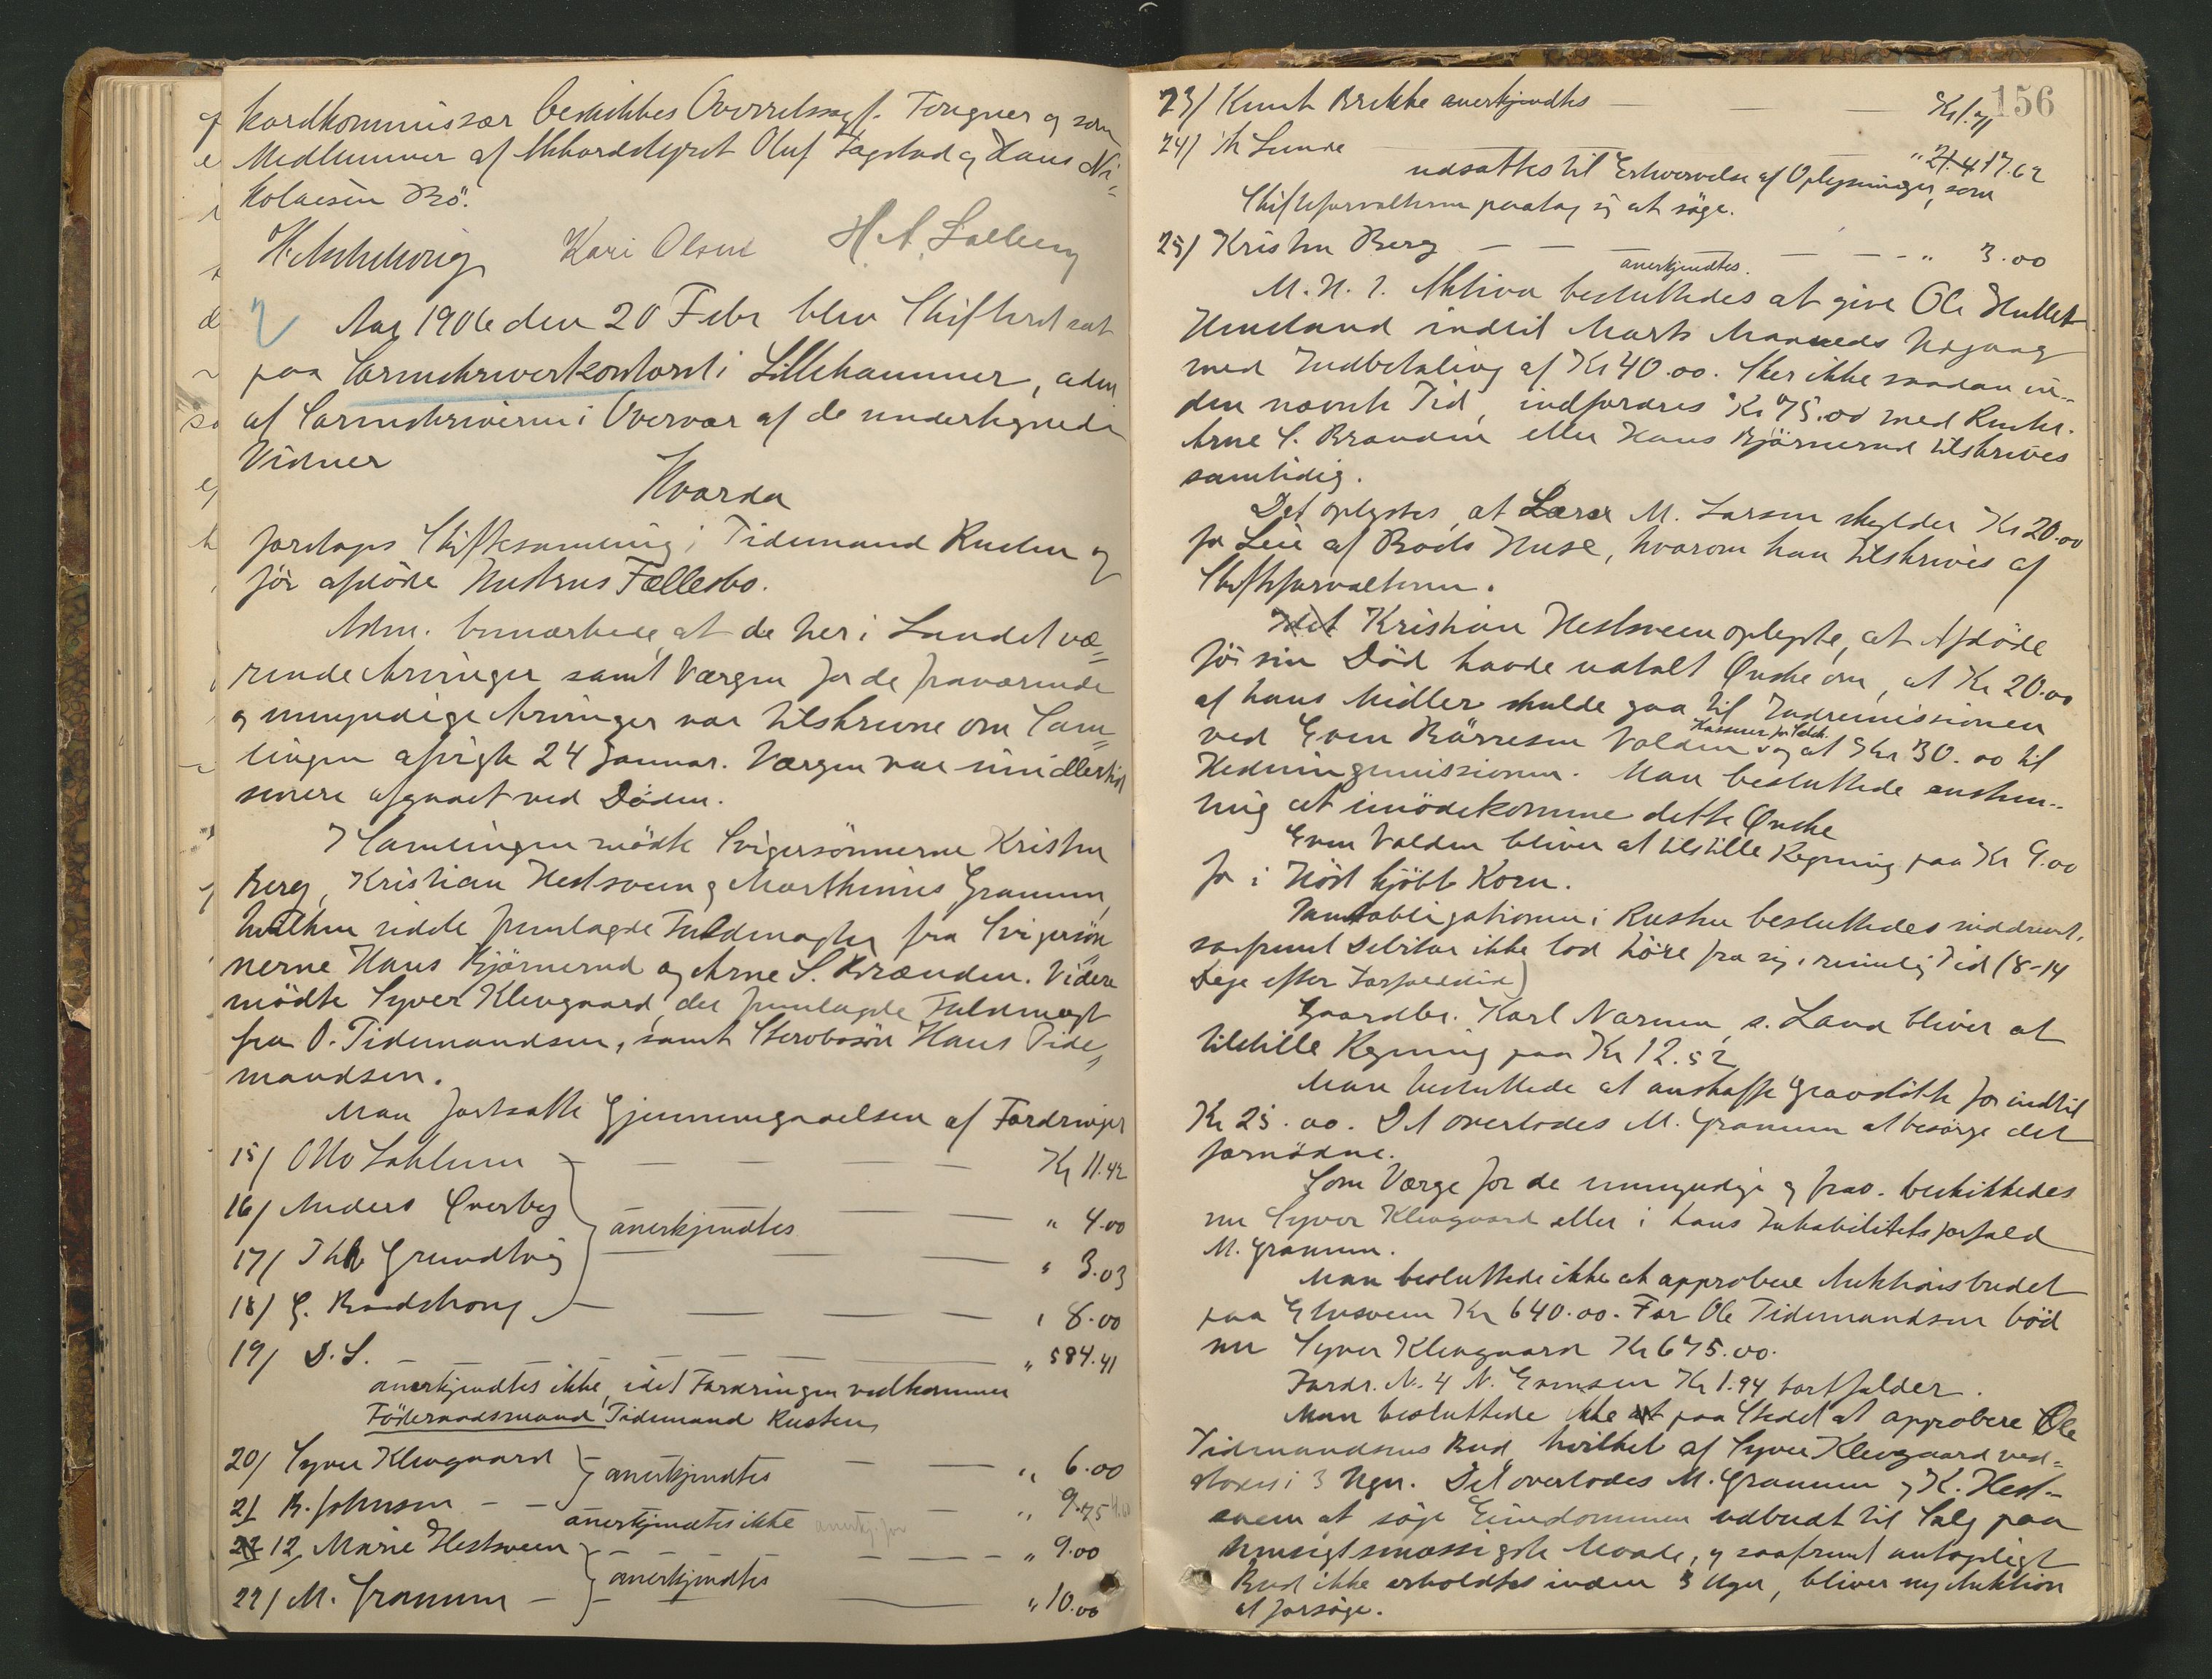 kordkommissær beskikkes Overretssagf. Tougner og som
Medlemmer af Akkordstyret Oluf Fagstad og Hans Ni=
kolaisen Bö.
Kari Olsen
Aar 1906 den 20 Febr blev Skifteret sat
paa Sorenskriverkontoret i Lillehammer, adm
af Sorenskriveren i Overvær af de undertegnede
Vidner
Hvorda
foretoges Skiftesamling i Tidemand Rusten og
før afdöde Hustrus Fællesbo.
Adm. bemærkede, at de her i Landet væ=
rende Arvinger samt Værgen for de fraværende
og umyndige Arvinger var tilskrevne om Sam=
lingen afvigte 24 Januar. Værgen var imidlertid
senere afgaaet ved Döden.
I Samlingen mödte Svigersönnerne Kristen
Berg, Kristian Hestsveen og Marthinus Gramm,
hvilken sidste fremlagde Fuldmagter fra Svigersön
nerne Hans Björnerud og Arne S. Brænden. Videre
mödte Syver Klevgaard, der fremlagde Fuldmagt
fra O. Tidemandsen, samt Sterbosön Hans Tide=
mandsen.
Man fortsatte Gjennemgaaelsen af Fordringer
15/ Otto Sahlum — — — — Kr 11.42
16/ Anders Överby anerkjendtes — — " 4.00
17/ Grundtvig — — — " 3.03
18/ G. — — — — " 8.00
19/ D. S. — — — — " 584.41
anerkjendtes ikke, idet Fordringen vedkommer
Föderaadsmand Tidemand Rusten
20/ Syver Klevgaard anerkjendtes — — " 6.00
21 B. Johnsen — — anerkjendtes ikke — — " 9.75
22 12, Marie Hestsveen — — — " 9.00
anerkjendtes
22/ M. Gramm — — " 10.00
156
23/ Knut Brekke anerkjendtes — —
24/ Lunde — " 21.417.62
udsattes til Erhvervelse af Oplysninger, som
Skifteforvalteren paatog sig at söge.
25/ Kristen Berg — — anerkjendtes. — — " 3.00
M. H. t. Aktiva besluttedes at give Ole Hullet
Henstand indtil Marts Maaneds Udgang
med Indbetaling af Kr 40.00. Sker ikke saadan in=
den nævnte Tid, indfordres Kr 75.00 med Renter.
Arne S. Brænden eller Hans Björnerud tilskrives
samtidig.
Det oplystes, at Lærer M. Larsen skylder Kr 20.00
for Leie af Boets Huse, hvorom han tilskrives af
Skifteforvalteren.
Kristian Hestsveen oplyste, at Afdöde
för sin Död havde udtalt Önske om, at Kr 20.00
af hans Midler skulde gaa til Indremissionen
ved Even Börresen Valden og at Kr 30.00 til
Hedningemissionen. Man besluttede enstem=
mig at imödekomme dette Önske
Even Valden bliver at tilstille Regning paa Kr 9.00
for i Höst kjöbt Korn.
Panteobligationen i Rusten besluttedes inddrevet,
saafremt Debitor ikke lod höre fra sig i rimelig Tid (8-14
Dage efter Forfaldstid)
Gaardbr. Karl Narum, s. Land bliver at
tilstille Regning paa Kr 12.52
Man besluttede at anskaffe Gravstötte for indtil
Kr 25.00. Det overlodes M. Gramm at besörge det
fornödne.
Som Værge for de umyndige og frav. beskikkedes
nu Syver Klevgaard eller i hans Inhabilitetsforfald
M. Gramm.
Man besluttede ikke at approbere Auktionsbudet
paa Elvesveen Kr 640.00. For Ole Tidemandsen böd
nu Syver Klevgaard Kr 675.00.
Fordr. N. 4 N. Evensen Kr 1.94 bortfalder.
Man besluttede ikke paa Stedet at approbere Ole
Tidemandsens Bud, hvilket af Syver Klevgaard ved=
stodes i 3 Uger. Det overlodes M. Gramm og K. Hest=
sveen at söge Eiendommen udbudt til Salg paa
hensigtsmæssigste Maade, og saafremt antageligt
Bud ikke erholdtes inden 3 Uger, bliver ny Auktion
at forsöge.